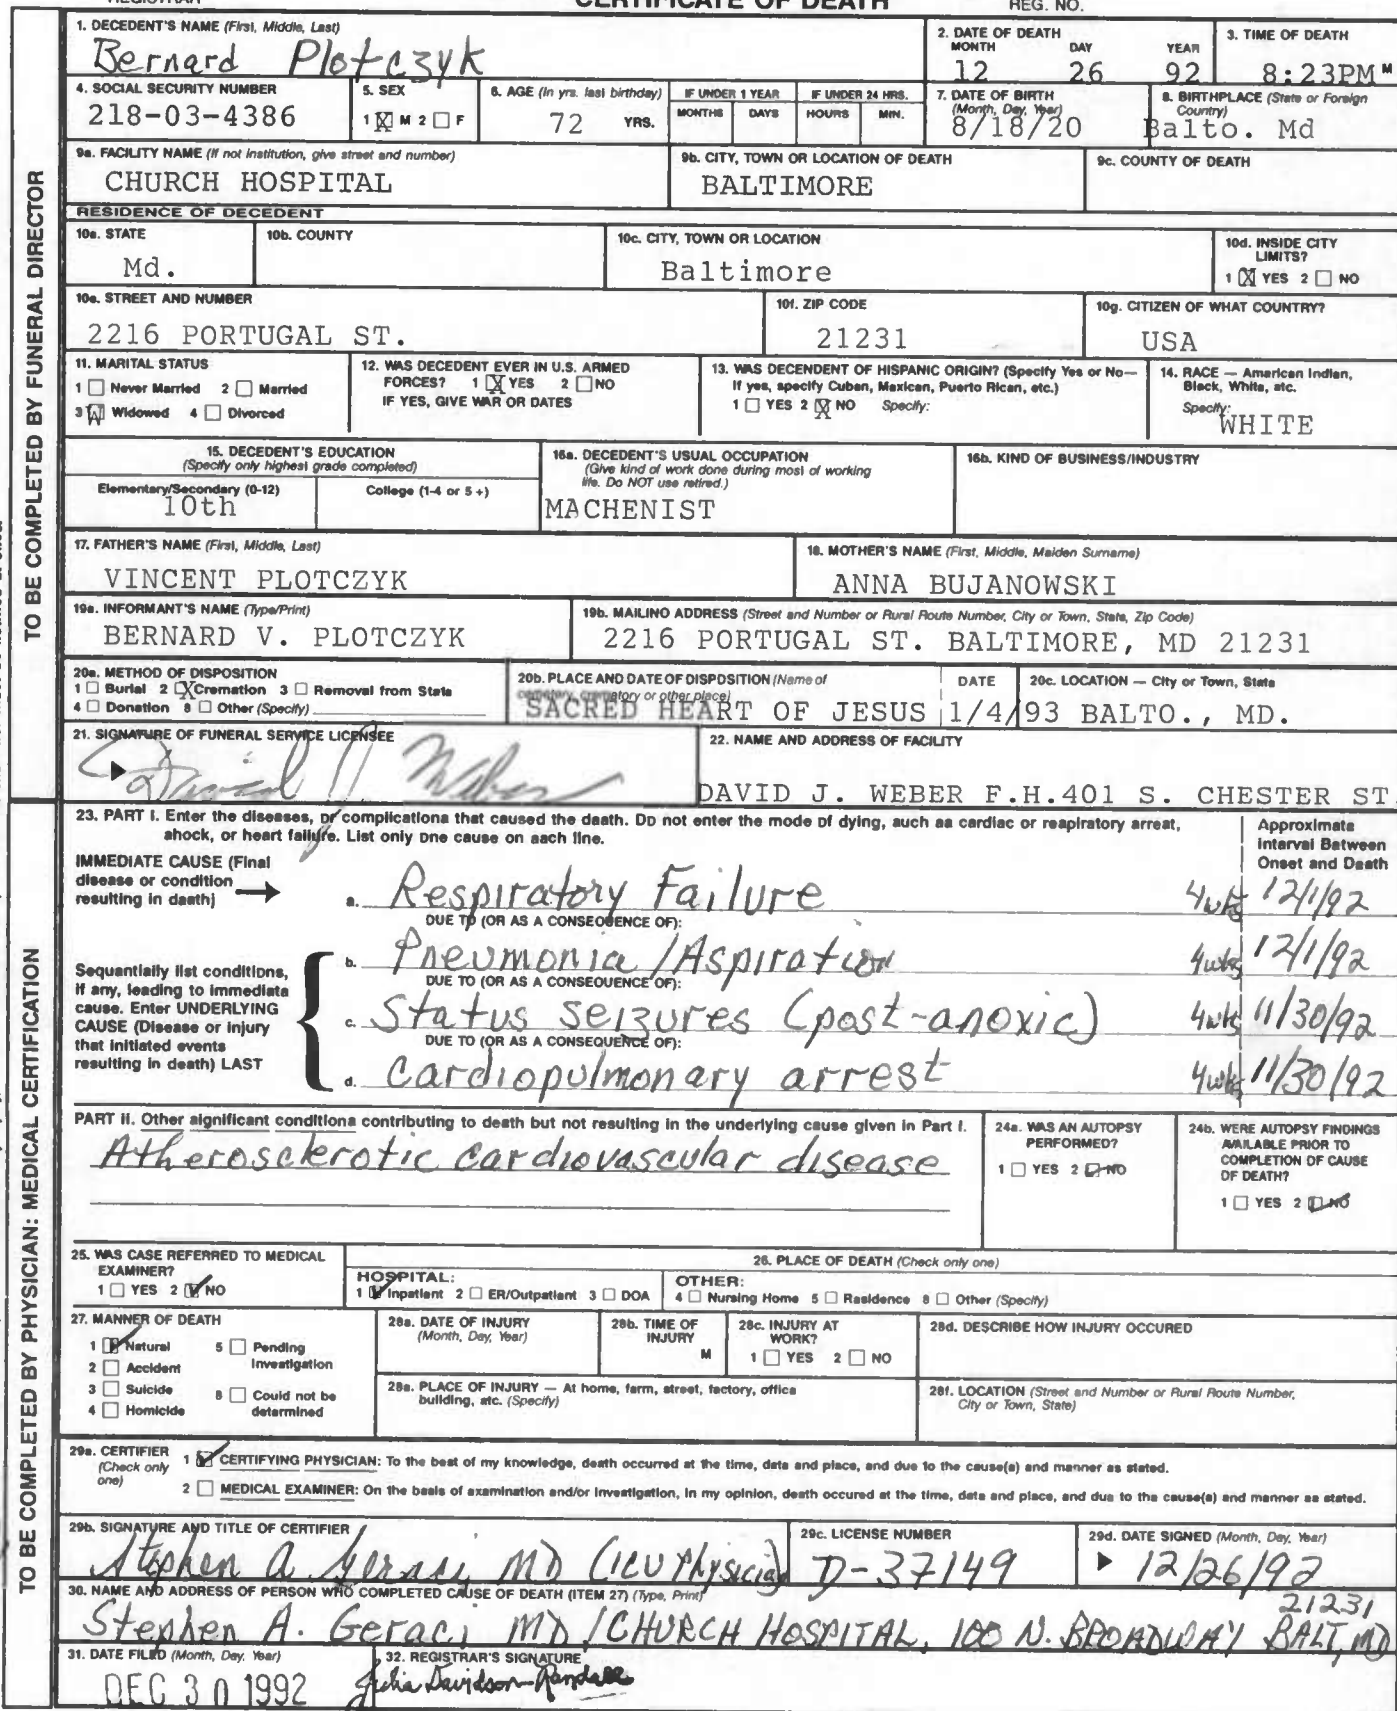 REGISTRAR
CERTIFICATE OF DEATH
REG. NO.
TO BE COMPLETED BY FUNERAL DIRECTOR
1. DECEDENT'S NAME (First, Middle, Last)
Bernard Plotczyk
2. DATE OF DEATH
MONTH DAY YEAR
12 26 92
3. TIME OF DEATH
8:23PM M
4. SOCIAL SECURITY NUMBER
218-03-4386
5. SEX
1 X M 2 □ F
6. AGE (In yrs. last birthday)
72 YRS.
IF UNDER 1 YEAR
MONTHS DAYS
IF UNDER 24 HRS.
HOURS MIN.
7. DATE OF BIRTH
(Month, Day, Year)
8/18/20
8. BIRTHPLACE (State or Foreign
Country)
Balto. Md
9a. FACILITY NAME (If not institution, give street and number)
CHURCH HOSPITAL
9b. CITY, TOWN OR LOCATION OF DEATH
BALTIMORE
9c. COUNTY OF DEATH
RESIDENCE OF DECEDENT
10a. STATE
Md.
10b. COUNTY
10c. CITY, TOWN OR LOCATION
Baltimore
10d. INSIDE CITY
LIMITS?
1 X YES 2 □ NO
10e. STREET AND NUMBER
2216 PORTUGAL ST.
10f. ZIP CODE
21231
10g. CITIZEN OF WHAT COUNTRY?
USA
11. MARITAL STATUS
1 □ Never Married 2 □ Married
3 X Widowed 4 □ Divorced
12. WAS DECEDENT EVER IN U.S. ARMED
FORCES? 1 X YES 2 □ NO
IF YES, GIVE WAR OR DATES
13. WAS DECENDENT OF HISPANIC ORIGIN? (Specify Yes or No—
If yes, specify Cuban, Mexican, Puerto Rican, etc.)
1 □ YES 2 X NO Specify:
14. RACE — American Indian,
Black, White, etc.
Specify:
WHITE
15. DECEDENT'S EDUCATION
(Specify only highest grade completed)
Elementary/Secondary (0-12)
10th
College (1-4 or 5 +)
16a. DECEDENT'S USUAL OCCUPATION
(Give kind of work done during most of working
life. Do NOT use retired.)
MACHENIST
16b. KIND OF BUSINESS/INDUSTRY
17. FATHER'S NAME (First, Middle, Last)
VINCENT PLOTCZYK
18. MOTHER'S NAME (First, Middle, Maiden Surname)
ANNA BUJANOWSKI
19a. INFORMANT'S NAME (Type/Print)
BERNARD V. PLOTCZYK
19b. MAILINO ADDRESS (Street and Number or Rural Route Number, City or Town, State, Zip Code)
2216 PORTUGAL ST. BALTIMORE, MD 21231
20a. METHOD OF DISPOSITION
1 □ Burial 2 X Cremation 3 □ Removal from State
4 □ Donation 8 □ Other (Specify)
20b. PLACE AND DATE OF DISPOSITION (Name of
cemetery, crematory or other place)
SACRED HEART OF JESUS
DATE
1/4/93
20c. LOCATION — City or Town, State
BALTO., MD.
21. SIGNATURE OF FUNERAL SERVICE LICENSEE
David J. Weber
22. NAME AND ADDRESS OF FACILITY
DAVID J. WEBER F.H.401 S. CHESTER ST
TO BE COMPLETED BY PHYSICIAN: MEDICAL CERTIFICATION
23. PART I. Enter the diseases, or complications that caused the death. Do not enter the mode of dying, such as cardiac or respiratory arrest,
shock, or heart failure. List only one cause on each line.
Approximate
Interval Between
Onset and Death
IMMEDIATE CAUSE (Final
disease or condition
resulting in death)
a. Respiratory Failure 4wks 12/1/92
DUE TO (OR AS A CONSEQUENCE OF):
Sequentially list conditions,
if any, leading to immediate
cause. Enter UNDERLYING
CAUSE (Disease or injury
that initiated events
resulting in death) LAST
b. Pneumonia /Aspiration 4wks 12/1/92
DUE TO (OR AS A CONSEQUENCE OF):
c. Status seizures (post-anoxic) 4wks 11/30/92
DUE TO (OR AS A CONSEQUENCE OF):
d. Cardiopulmonary arrest 4wks 11/30/92
PART II. Other significant conditions contributing to death but not resulting in the underlying cause given in Part I.
Atherosclerotic cardiovascular disease
24a. WAS AN AUTOPSY
PERFORMED?
1 □ YES 2 ☑ NO
24b. WERE AUTOPSY FINDINGS
AVAILABLE PRIOR TO
COMPLETION OF CAUSE
OF DEATH?
1 □ YES 2 ☑ NO
25. WAS CASE REFERRED TO MEDICAL
EXAMINER?
1 □ YES 2 ☑ NO
26. PLACE OF DEATH (Check only one)
HOSPITAL:
1 ☑ Inpatient 2 □ ER/Outpatient 3 □ DOA
OTHER:
4 □ Nursing Home 5 □ Residence 8 □ Other (Specify)
27. MANNER OF DEATH
1 ☑ Natural 5 □ Pending
Investigation
2 □ Accident
3 □ Suicide 8 □ Could not be
determined
4 □ Homicide
28a. DATE OF INJURY
(Month, Day, Year)
28b. TIME OF
INJURY
M
28c. INJURY AT
WORK?
1 □ YES 2 □ NO
28d. DESCRIBE HOW INJURY OCCURED
28e. PLACE OF INJURY — At home, farm, street, factory, office
building, etc. (Specify)
28f. LOCATION (Street and Number or Rural Route Number,
City or Town, State)
29a. CERTIFIER
(Check only
one)
1 ☑ CERTIFYING PHYSICIAN: To the best of my knowledge, death occurred at the time, date and place, and due to the cause(s) and manner as stated.
2 □ MEDICAL EXAMINER: On the basis of examination and/or investigation, in my opinion, death occured at the time, date and place, and due to the cause(s) and manner as stated.
29b. SIGNATURE AND TITLE OF CERTIFIER
Stephen A Geraci MD (ICU Physician)
29c. LICENSE NUMBER
D-37149
29d. DATE SIGNED (Month, Day, Year)
12/26/92
30. NAME AND ADDRESS OF PERSON WHO COMPLETED CAUSE OF DEATH (ITEM 27) (Type, Print)
Stephen A. Geraci MD / CHURCH HOSPITAL, 100 N. BROADWAY BALT, MD
21231
31. DATE FILED (Month, Day, Year)
DEC 30 1992
32. REGISTRAR'S SIGNATURE
Julia Davidson-Randall